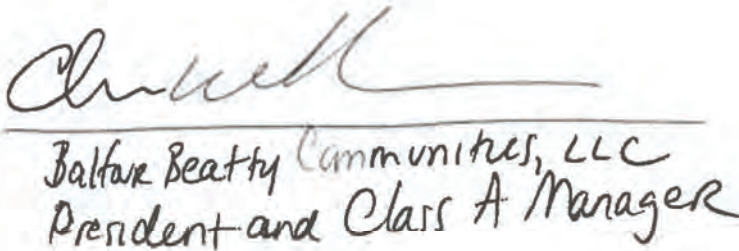 Balfour Beatty Communities, LLC
President and Class A Manager